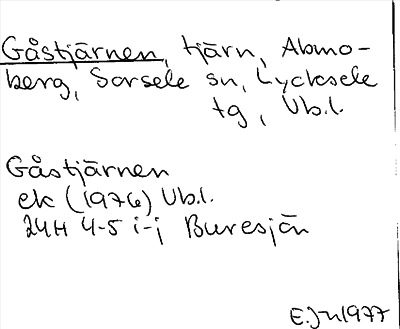 Gåstjärnen, tjärn, Abmo-
berg, Sorsele sn, Lycksele
tg, Vb.l.
Gåstjärnen
ek (1976) Vb.l.
24H 4-5 i-j Buresjön
E.Jn 1977